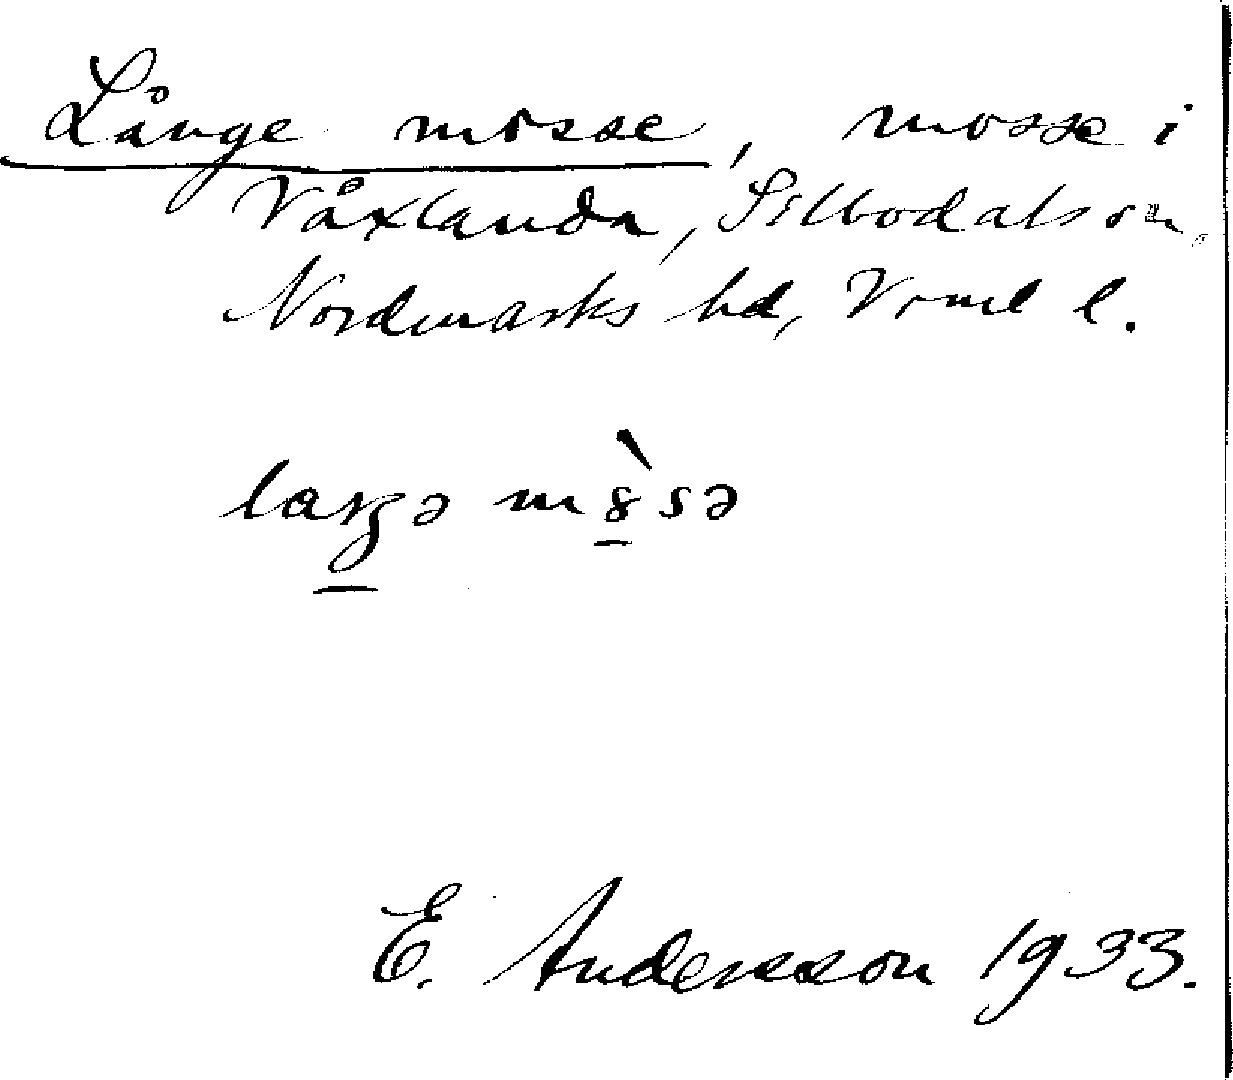 Långe mosse, mosse i
Våxlanda, Silbodals sn,
Nordmarks hd, Vrml l.
laŋə m8̀sə
E. Andersson 1933.